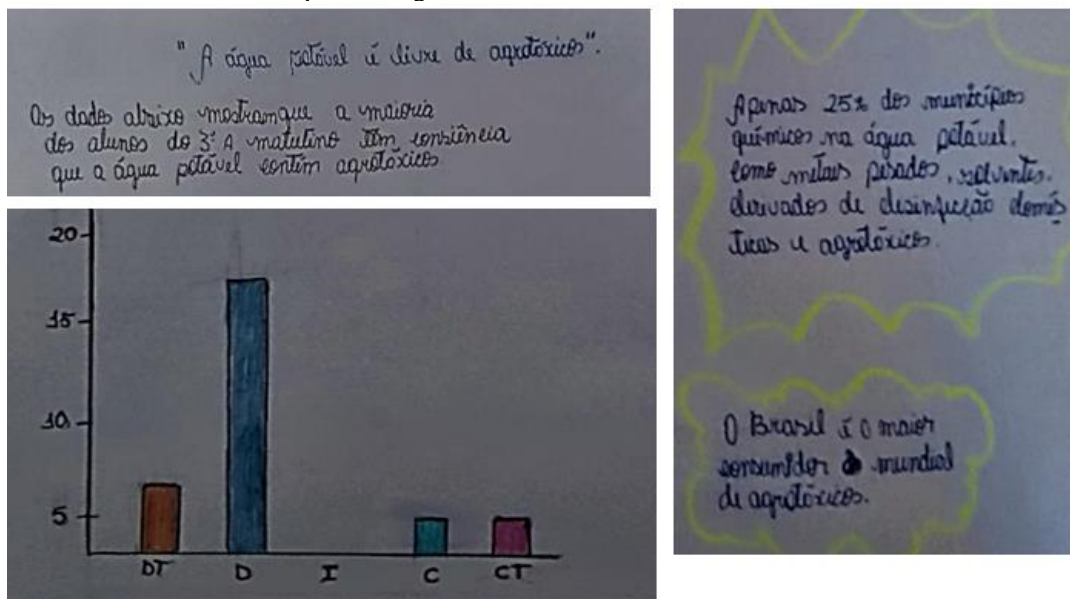 "A água potável é livre de agrotóxicos".
Os dados abaixo mostram que a maioria
dos alunos do 3º A matutino têm consiência
que a água potável contém agrotóxicos
20
15
10
5
DT D I C CT
Apenas 25% dos municípios
químicos na água potável.
como metais pesados, solventes.
derivados de desinfecção domés
ticas e agrotóxicos.
O Brasil é o maior
consumidor mundial
de agrotóxicos.